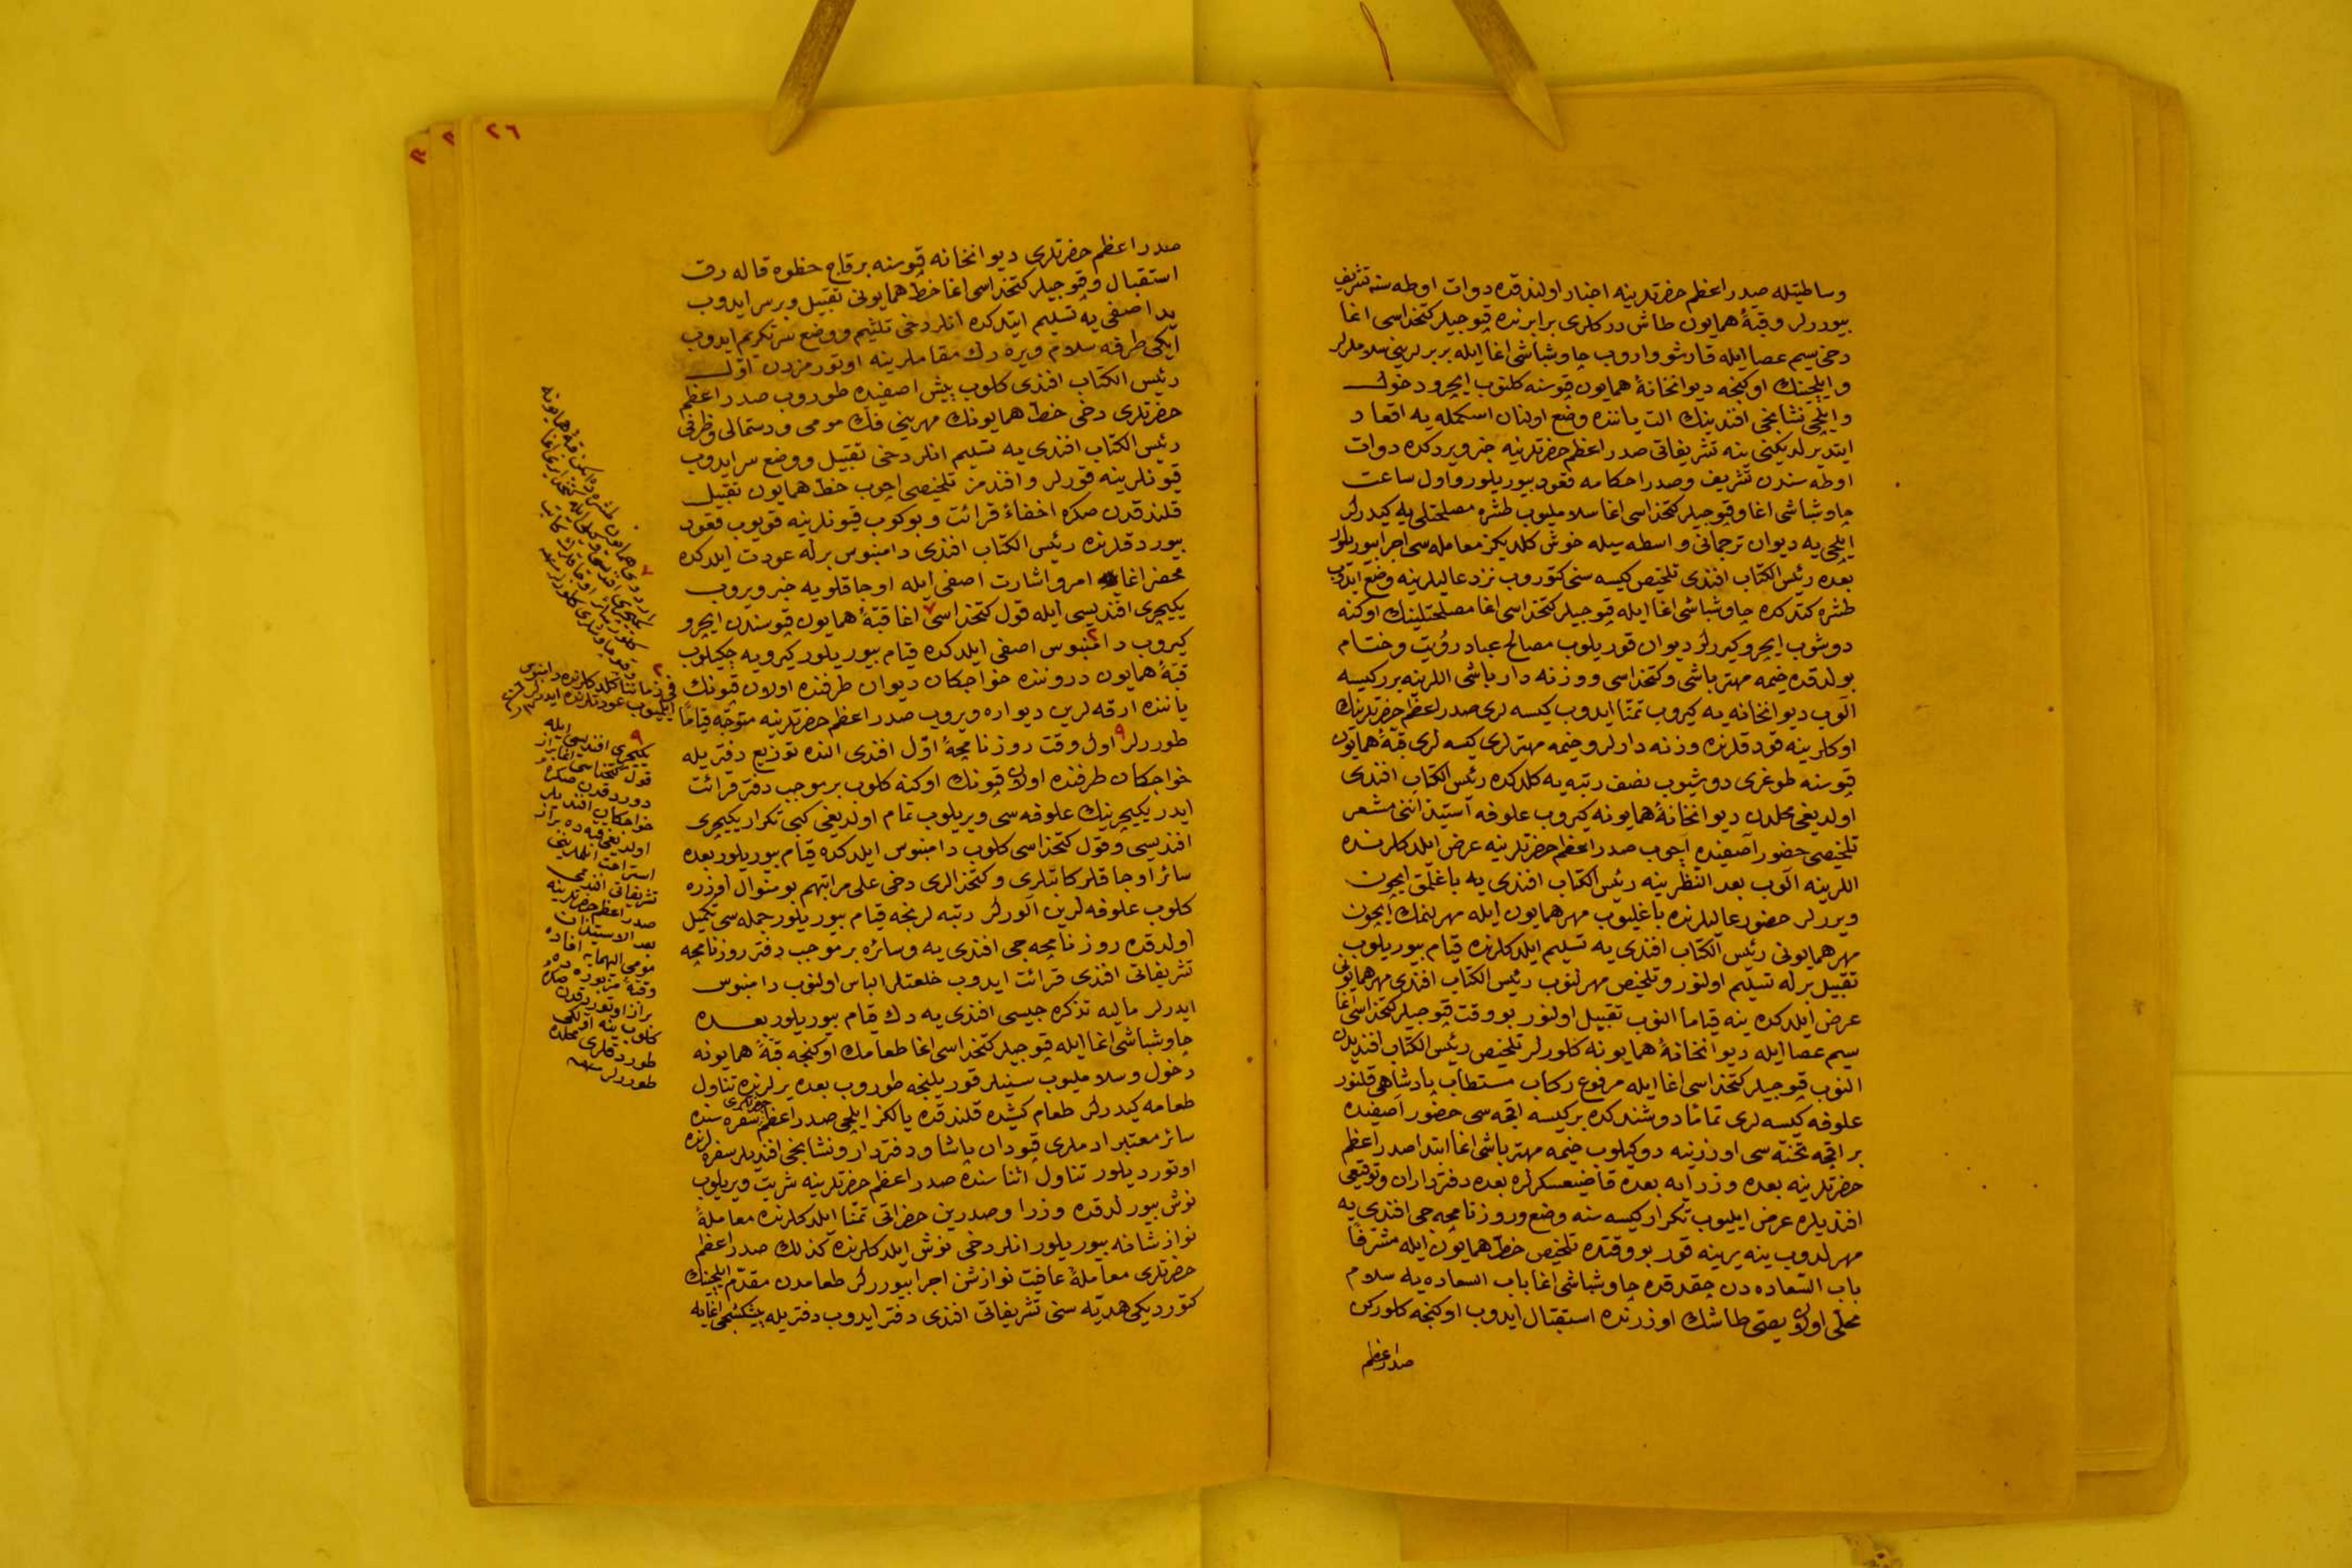 وساطتيله صدر اعظم حضرتلرينه اخبار اولندقده دوات اوطه سنه تشريف
بيوررلر وقبهٔ همايون طاش درکلری برابرنده قپوجيلر کتخداسی اغا
دخی سيم عصا ايله قارشو واروب چاوشباشی اغا ايله بربرلرينی سلاملرلر
وايلچينك اوکنجه ديوانخانهٔ همايون قپوسنه کلنوب ايچرو دخول
وايلچی نشانجی افندينك الت ياننده وضع اولنان اسکمله يه اقعاد
ايتديرلديکنی ينه تشريفاتی صدر اعظم حضرتلرينه خبر ويردکده دوات
اوطه سندن تشريف وصدر احکامه قعود بيوريلور واول ساعت
چاوشباشی اغا وقپوجيلر کتخداسی اغا سلاملیوب طشره مصلحتلی يه کيدرلر
ايلچی يه ديوان ترجمانی واسطه سيله خوش کلديکز معامله سی اجرا بيوريلور
بعده رئيس الکتاب افندی تلخيص کيسه سنی کتوروب نزد عاليلرينه وضع ايدوب
طشره کتدکده چاوشباشی اغا ايله قپوجيلر کتخداسی اغا مصلحتلينك اوکنه
دوشوب ايچرو کيررلر ديوان قوريلوب مصالح عباد رؤيت وختام
بولدقده خيمه مهترباشی وکتخداسی ووزنه دار باشی اللرينه برر کيسه
الوب ديوانخانه يه کيروب تمنا ايدوب کيسه لری صدر اعظم حضرتلرينك
اوکلرينه قودقلرنده وزنه دارلر وخيمه مهترلری کيسه لری قبهٔ همايون
قپوسنه طوغری دوشيوب نصف رتبه يه کلدکده رئيس الکتاب افندی
اولديغی محلدن ديوانخانهٔ همايونه کيروب علوفه استيذاننی مشعر
تلخيصی حضور آصفيده آچوب صدر اعظم حضرتلرينه عرض ايلدکلرنده
اللرينه الوب بعد النظر ينه رئيس الکتاب افندی يه باغلمق ايچون
ويررلر حضور عاليلرنده باغليوب مهر همايون ايله مهرلنمك ايچون
مهر همايونی رئيس الکتاب افندی يه تسليم ايلدکلرنده قيام بيوريلوب
تقبيل برله تسليم اولنور وتلخيص مهرلنوب رئيس الکتاب افندی مهر همايونی
عرض ايلدکده ينه قياما النوب تقبيل اولنور بو وقت قپوجيلر کتخداسی اغا
سيم عصا ايله ديوانخانهٔ همايونه کلورلر تلخيص رئيس الکتاب افنديدن
النوب قپوجيلر کتخداسی اغا ايله مرفوع رکاب مستطاب پادشاهی قلنور
علوفه کيسه لری تماما دوشندکده بر کيسه اقچه سی حضور آصفيده
بر اقچه تختهسی اوزرينه دوکيلوب خيمه مهترباشی اغا ابتدا صدر اعظم
حضرتلرينه بعده وزرايه بعده قاضيعسکرلره بعده دفترداران وتوقيعی
افنديلره عرض ايليوب تکرار کيسه سنه وضع وروزنامچه جی افندی يه
مهرلدوب ينه يرينه قور بو وقتده تلخيص خط همايون ايله مشرفا
باب السعاده دن چقدقده چاوشباشی اغا باب السعاده يه سلام
محلی اولان يصی طاشك اوزرنده استقبال ايدوب اوکنجه کلورکن
صدر اعظم
٢٦
صدر اعظم حضرتلری ديوانخانه قپوسنه برقاچ خطوه قاله رق
استقبال وقپوجيلر کتخداسی اغا خط همايونی تقبيل وبر سر ايدوب
يد اصفی يه تسليم ايتدکده انلر دخی تلثيم ووضع سر تکريم ايدوب
ايکی طرفه سلام ويره رك مقاملرينه اوتورمزدن اول
رئيس الکتاب افندی کلوب پيش اصفيده طوروب صدر اعظم
حضرتلری دخی خط همايونك مهرينی فك مومی ودستمالی وظرفی
رئيس الکتاب افندی يه تسليم انلر دخی تقبيل ووضع سر ايدوب
قيونلرينه قورلر وافندمز تلخيصی اچوب خط همايون تقبيل
قلندقدن صکره اخفاء قرائت وبوکوب قيونلرينه قويوب قعود
بيوردقلرنده رئيس الکتاب افندی دامنبوس برله عودت ايلدکده
محضر اغايه امر واشارت اصفی ايله اوجاقلويه خبر ويروب
يکيچری افنديسی ايله قول کتخداسی ٧ اغا قبهٔ همايون قپوسندن ايچرو
کيروب دامنبوس ٢ اصفی ايلدکده قيام بيوريلور کيرويه چکيلوب
قبهٔ همايون دروننده خواجکان ديوان طرفنده اولان قپونك
ياننده ارقه لرين ديواره ويروب صدر اعظم حضرتلرينه متوجه قياما
طوررلر ٩ اول وقت روزنامچهٔ اول افندی النده توزيع دفتريله
خواجکان طرفنده اولان قپونك اوکنه کلوب بر موجب دفتر قرائت
ايدر يکيچرينك علوفه سی ويريلوب تمام اولديغی کبی تکرار يکيچری
افنديسی وقول کتخداسی کلوب دامنبوس ايلدکده قيام بيوريلور بعده
سائر اوجاقلر کاتبلری وکتخدالری دخی علی مراتبهم بو منوال اوزره
کلوب علوفه لرين آلورلر رتبه لرنجه قيام بيوريلور جمله سی تکميل
اولدقده روزنامچه جی افندی يه وسائره بر موجب دفتر روزنامچه
تشريفاتی افندی قرائت ايدوب خلعتلر الباس اولنوب دامنبوس
ايدرلر ماليه تذکره جيسی افندی يه دك قيام بيوريلور بعده
چاوشباشی اغا ايله قپوجيلر کتخداسی اغا طعامك اوکنجه قبهٔ همايونه
دخول وسلاملیوب سينيلر قوريلنجه طوروب بعده يرلرنده تناول
طعامه کيدرلر طعام کشيده قلندقده يالکز ايلچی صدر اعظم حضرتلری سفره سنده
سائر معتبر ادملری قپودان پاشا ودفتردار ونشانجی افنديلر سفره لرنده
اوتورديلور تناول اثناسنده صدر اعظم حضرتلرينه شربت ويريلوب
نوش بيورلدقده وزرا وصدرين حضراتی تمنا ايلدکلرنده معاملهٔ
نوازشانه بيوريلور انلر دخی نوش ايلدکلرنده کذلك صدر اعظم
حضرتلری معاملهٔ عافيت نوازش اجرا بيوررلر طعامدن مقدم ايلچينك
کتورديکی هديه سنی تشريفاتی افندی دفتر ايدوب دفتريله پيشکشجی اغايه
٧
اردوی همايون طشره ده ايکن قبهٔ همايونه
يکيچری افنديسی وکيلی ايله کتخدا يری اغا
کلور سائر اوجاقلرك کاتب
٢
فی زماننا کلدکلرنده دامنبوس
ايليوب عودتلرنده ايدرلر
٩
يکيچری افنديسی ايله
قول کتخداسی اغا براز
دوردقدن صکره
خواجکان افنديلر
اولديغی قبه ده براز
استراحت ايتملرينی
تشريفاتی افندی
صدر اعظم حضرتلرينه
بعد الاستيذان
مومی اليهمايه افاده
وقبهٔ مزبوره ده
براز اوتوردقدن صکره
کلوب ينه اولکی
طوردقلری محلده
طوررلر